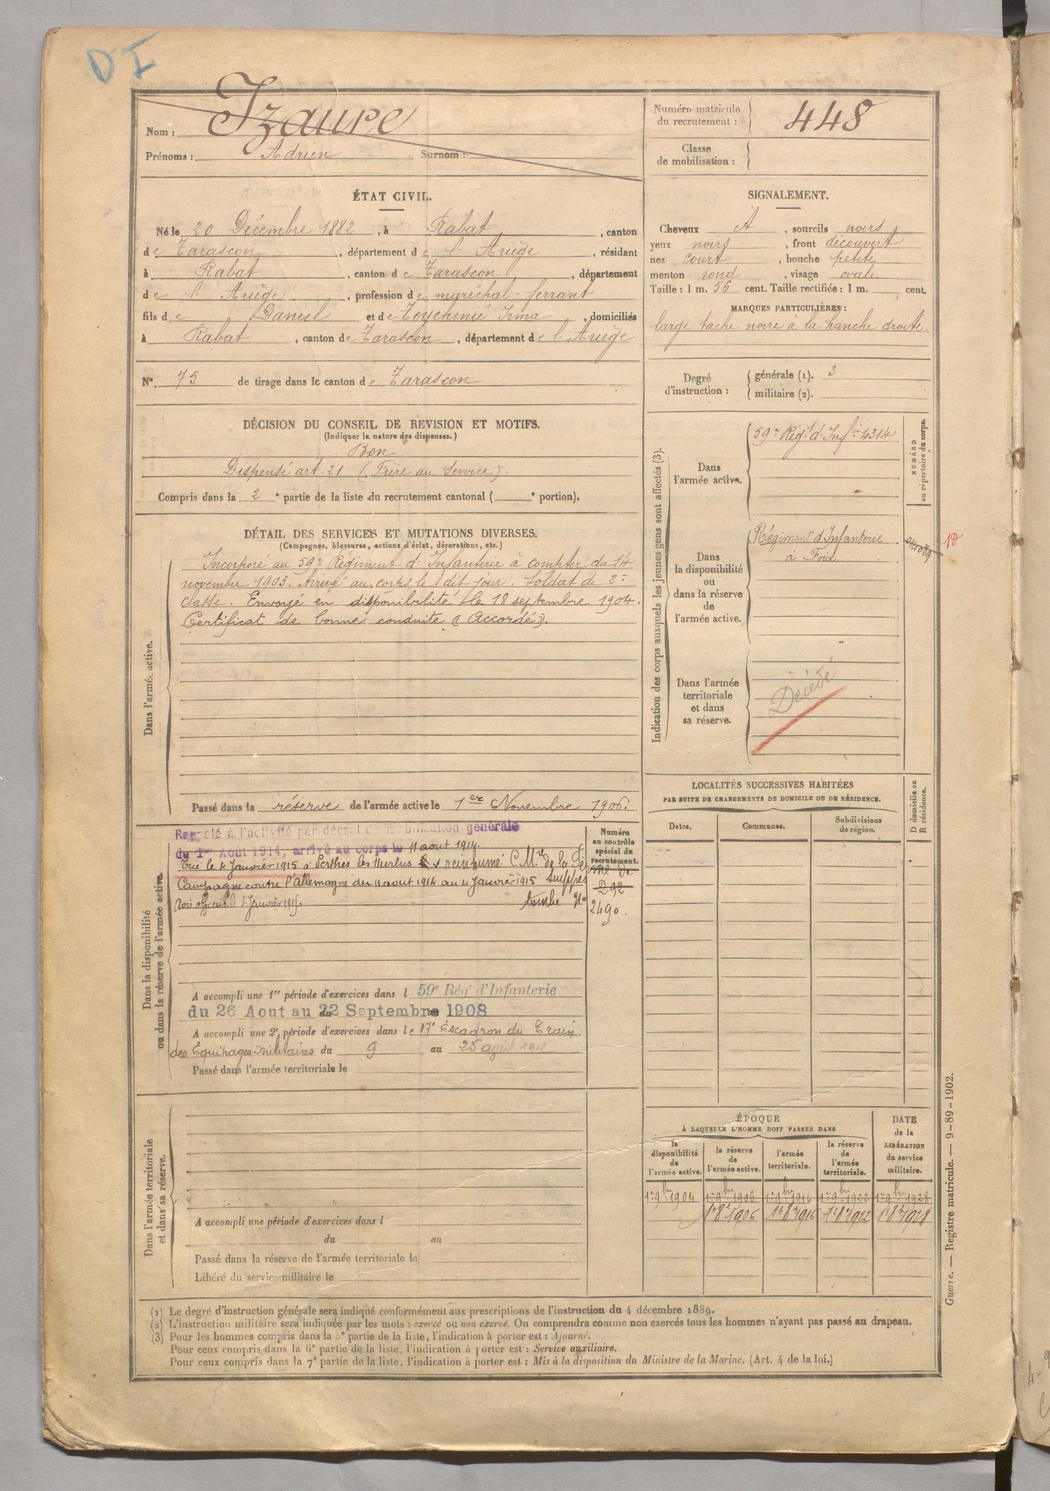 DI
Nom : Izaure
Prénoms : Adrien Surnom :
Numéro matricule du recrutement : 448
Classe de mobilisation :
ÉTAT CIVIL.
Né le 20 Décembre 1882, à Rabat, canton
de Tarascon, département de l'Ariège, résidant
à Rabat, canton de Tarascon, département
de l'Ariège, profession de maréchal-ferrant
fils de Daniel et de Teychenié Irma, domiciliés
à Rabat, canton de Tarascon, département de l'Ariège
N° 75 de tirage dans le canton de Tarascon
DÉCISION DU CONSEIL DE REVISION ET MOTIFS.
(Indiquer la nature des dispenses.)
Bon
Dispensé art. 21 (Frère au Service).
Compris dans la 2e partie de la liste du recrutement cantonal ( e portion).
SIGNALEMENT.
Cheveux , sourcils noirs
yeux noirs, front découvert
nez court, bouche petite
menton rond, visage ovale
Taille : 1 m. 56 cent. Taille rectifiée : 1 m. cent.
MARQUES PARTICULIÈRES :
large tache noire à la hanche droite
Degré d'instruction : générale (1). 3
militaire (2).
DÉTAIL DES SERVICES ET MUTATIONS DIVERSES.
(Campagnes, blessures, actions d'éclat, décorations, etc.)
Dans l'armée active.
Incorporé au 59e Régiment d'Infanterie à compter du 14
novembre 1903. Arrivé au corps le dit jour. Soldat de 2e
classe. Envoyé en disponibilité le 18 septembre 1904.
Certificat de bonne conduite "Accordé".
Passé dans la réserve de l'armée active le 1er Novembre 1906.
Indication des corps auxquels les jeunes gens sont affectés (3).
NUMÉRO au répertoire du corps.
Dans l'armée active.
59e Régt d'Infie 4314
Dans la disponibilité ou dans la réserve de l'armée active.
Régiment d'Infanterie
à Foix
Dans l'armée territoriale et dans sa réserve.
Décédé
Dans la disponibilité ou dans la réserve de l'armée active.
Rappelé à l'activité par décret de mobilisation générale
du 1er Août 1914, arrivé au corps le 11 aout 1914.
Tué le 4 Janvier 1915 à Perthes les Hurlus
Campagne contre l'Allemagne du 11 aout 1914 au 4 Janvier 1915
tombe No 2490.
Numéro au contrôle spécial du recrutement.
A accompli une 1re période d'exercices dans l 59e Rég d'Infanterie
du 26 Aout au 22 Septembre 1908
A accompli une 2e période d'exercices dans le 17e Escadron du Train
des Equipages militaires du 9 au 25 avril
Passé dans l'armée territoriale le
LOCALITÉS SUCCESSIVES HABITÉES
PAR SUITE DE CHANGEMENTS DE DOMICILE OU DE RÉSIDENCE.
Dates. Communes. Subdivisions de région. D domicile ou R résidence.
Dans l'armée territoriale et dans sa réserve.
A accompli une période d'exercices dans l
du au
Passé dans la réserve de l'armée territoriale le
Libéré du service militaire le
ÉPOQUE
À LAQUELLE L'HOMME DOIT PASSER DANS
la disponibilité de l'armée active. la réserve de l'armée active. l'armée territoriale. la réserve de l'armée territoriale. DATE de la LIBÉRATION du service militaire.
1er 9bre 1904 1er 9bre 1906 1er 9bre 1916 1er 9bre 1922 1er 9bre 1928
1er 8bre 1906 1er 8bre 1916 1er 8bre 1922 1er 8bre 1928
Guerre. — Registre matricule. — 9-89-1902.
(1) Le degré d'instruction générale sera indiqué conformément aux prescriptions de l'instruction du 4 décembre 1889.
(2) L'instruction militaire sera indiquée par les mots : exercé ou non exercé. On comprendra comme non exercés tous les hommes n'ayant pas passé au drapeau.
(3) Pour les hommes compris dans la 5e partie de la liste, l'indication à porter est : Ajourné.
Pour ceux compris dans la 6e partie de la liste, l'indication à porter est : Service auxiliaire.
Pour ceux compris dans la 7e partie de la liste, l'indication à porter est : Mis à la disposition du Ministre de la Marine. (Art. 4 de la loi.)